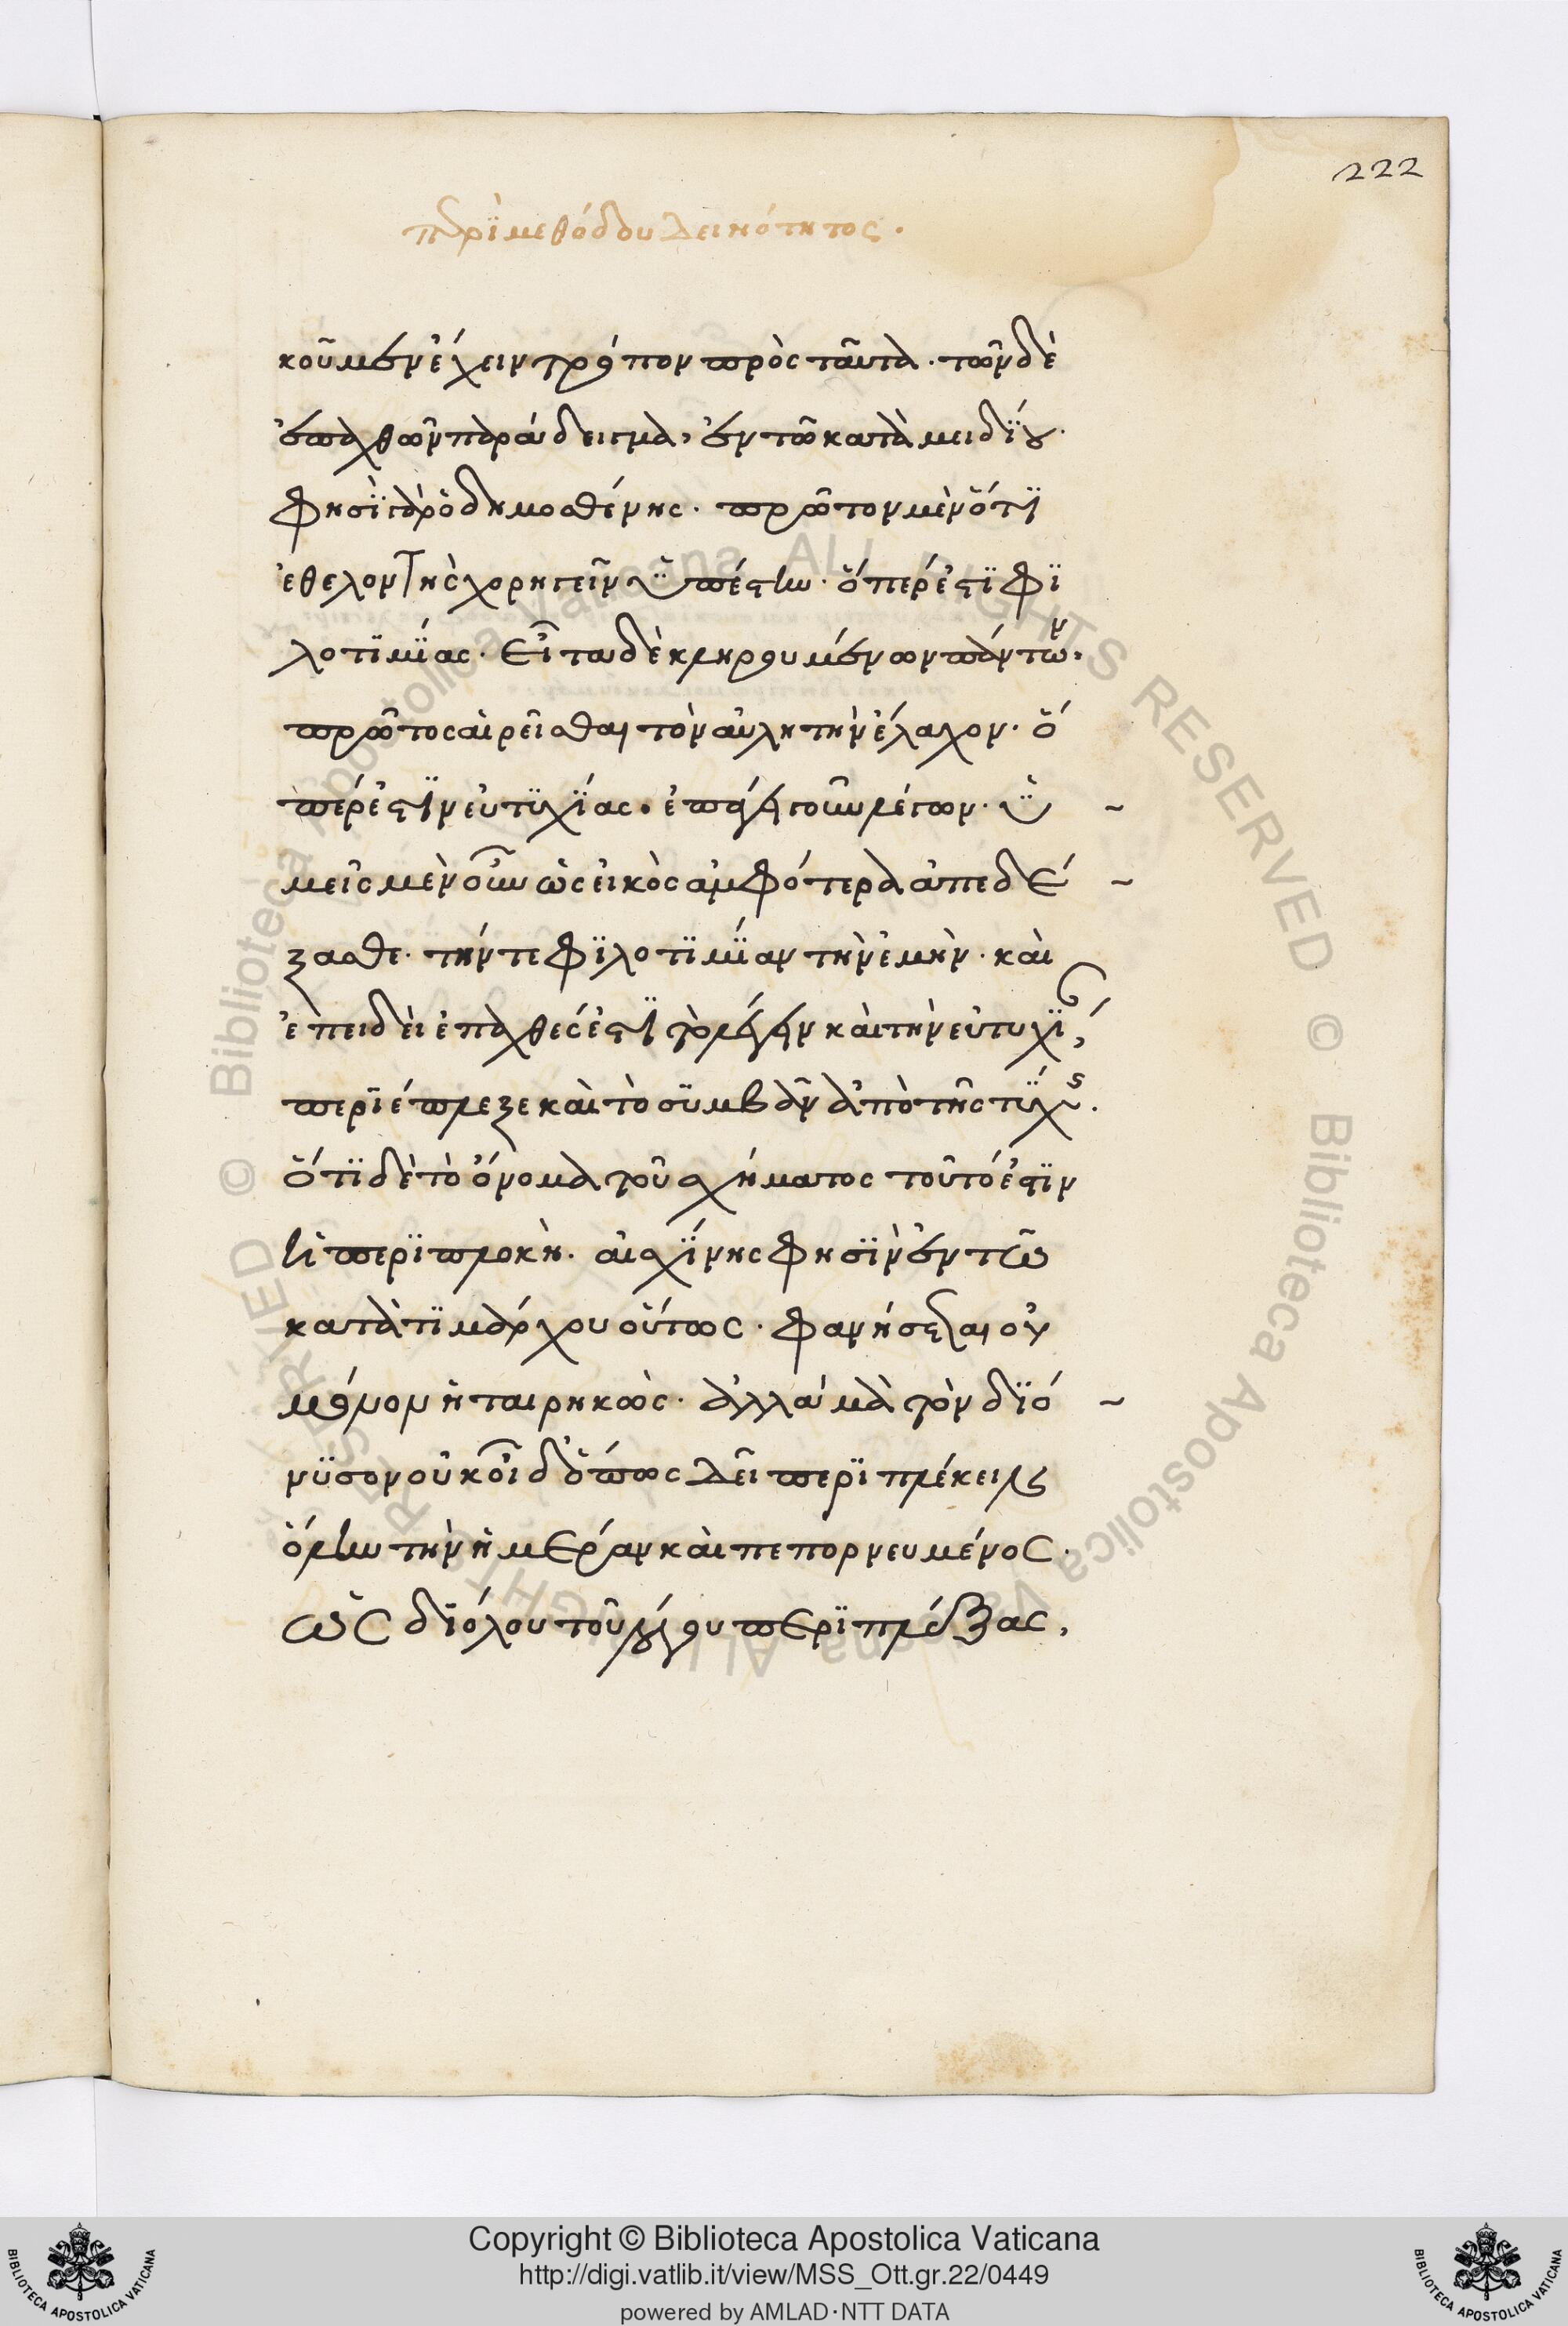 222
περὶ μεθόδου δεινότητος.
κοῦμεν ἔχειν τρόπον πρὸς ταῦτα. τῶν δὲ
ἐπαχθῶν παράδειγμα, ἐν τῶ κατὰ μειδίου.
φησὶ γὰρ ὁ δημοσθένης. πρῶτον μὲν ὅτι
ἐθελοντὴς χορηγεῖν ὑπέστην. ὅπερ ἐστι φι
λοτιμίας. εἶτα δὲ κληρουμένων πάντων,
πρῶτος αἱρεῖσθαι τὸν αὐλητὴν ἔλαχον. ὅ
περ ἐστὶν εὐτυχίας. ἐπάγει γοῦν λέγων. ὑ ~
μεῖς μὲν οὖν ὡς εἰκὸς ἀμφότερα ἀπεδέ ~
ξασθε. τήν τε φιλοτιμίαν τὴν ἐμὴν. καὶ
ἐπειδὴ ἐπαχθές ἐστι τὸ λέγειν καὶ τὴν εὐτυχίαν,
περιέπλεξε καὶ τὸ συμβὰν ἀπὸ τῆς τύχης.
ὅτι δὲ τὸ ὄνομα τοῦ σχήματος τοῦτό ἐστιν
ἡ περιπλοκὴ. αἰσχίνης φησὶν ἐν τῶ
κατὰ τιμάρχου οὕτως. φανήσεται οὐ
μόνον ἡταιρηκὼς. ἀλλὰ μὰ τὸν διό ~
νυσον οὐκ οἶδ ὅπως δεῖ περιπλέκειν
ὅλην τὴν ἡμέραν καὶ πεπορνευμένος.
ὡς δι ὅλου τοῦ λόγου περιπλέξας,
Copyright © Biblioteca Apostolica Vaticana
http://digi.vatlib.it/view/MSS_Ott.gr.22/0449
powered by AMLAD·NTT DATA